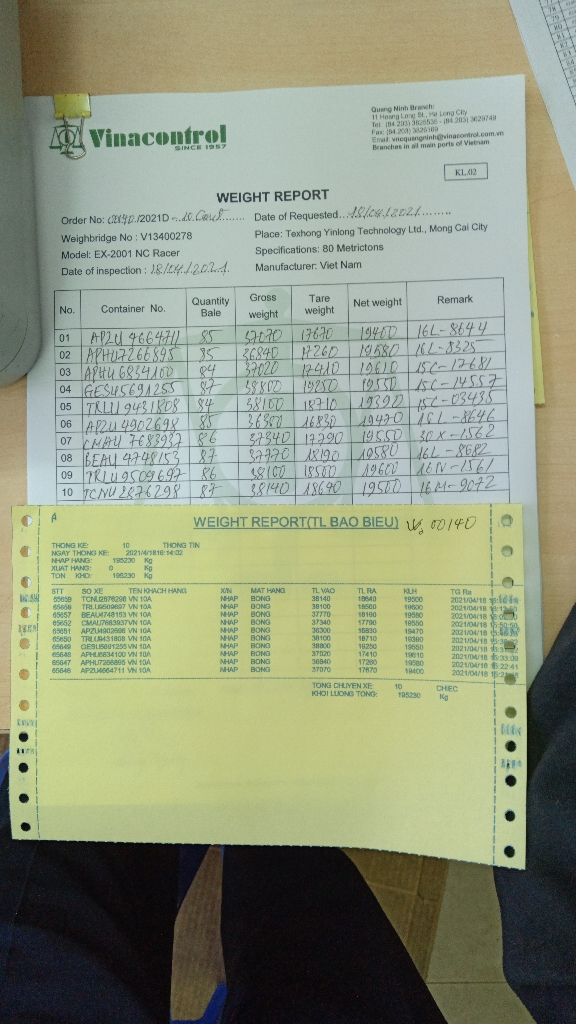 Vinacontrol
SINCE 1957
Quang Ninh Branch:
11 Hoang Long St., Ha Long City
Tel: (84.203) 3825536 - (84.203) 3629749
Fax: (84.203) 3826169
Email: vncquangninh@vinacontrol.com.vn
Branches in all main ports of Vietnam
KL.02
WEIGHT REPORT
Order No: 0140/2021D - 10 Cont Date of Requested 18/04/2021
Weighbridge No : V13400278 Place: Texhong Yinlong Technology Ltd., Mong Cai City
Model: EX-2001 NC Racer Specifications: 80 Metrictons
Date of inspection : 18/04/2021 Manufacturer: Viet Nam
No. Container No. Quantity Bale Gross weight Tare weight Net weight Remark
01 APZU 4664711 85 37070 17670 19400 16L-8644
02 APHU7266895 85 36840 17260 19580 16L-8325
03 APHU 6834100 84 37020 17410 19610 15C-17681
04 GESU5691255 87 38800 19250 19550 15C-14557
05 TRLU 9431808 84 38100 18710 19390 15C-03435
06 APZU 4902698 85 36300 16830 19470 16L-8646
07 CMAU 7683937 86 37340 17790 19550 30X-1562
08 BEAU 4748153 87 37770 18190 19580 16L-8682
09 TRLU 9509697 86 38100 18500 19600 16N-1561
10 TCNU 2876298 87 38140 18640 19500 16M-9072
A
WEIGHT REPORT(TL BAO BIEU) 00140
THONG KE: 10 THONG TIN
NGAY THONG KE: 2021/4/18 16:14:02
NHAP HANG: 195230 Kg
XUAT HANG: 0 Kg
TON KHO: 195230 Kg
STT SO XE TEN KHACH HANG X/N MAT HANG TL VAO TL RA KLH TG Ra
65659 TCNU2876298 VN 10A NHAP BONG 38140 18640 19500 2021/04/18
65658 TRLU9509697 VN 10A NHAP BONG 38100 18500 19600 2021/04/18
65657 BEAU4748153 VN 10A NHAP BONG 37770 18190 19580 2021/04/18
65652 CMAU7683937 VN 10A NHAP BONG 37340 17790 19550 2021/04/18
65651 APZU4902698 VN 10A NHAP BONG 36300 16830 19470 2021/04/18
65650 TRLU9431808 VN 10A NHAP BONG 38100 18710 19390 2021/04/18
65649 GESU5691255 VN 10A NHAP BONG 38800 19250 19550 2021/04/18
65648 APHU6834100 VN 10A NHAP BONG 37020 17410 19610 2021/04/18
65647 APHU7266895 VN 10A NHAP BONG 36840 17260 19580 2021/04/18
65646 APZU4664711 VN 10A NHAP BONG 37070 17670 19400 2021/04/18
TONG CHUYEN XE: 10 CHIEC
KHOI LUONG TONG: 195230 Kg